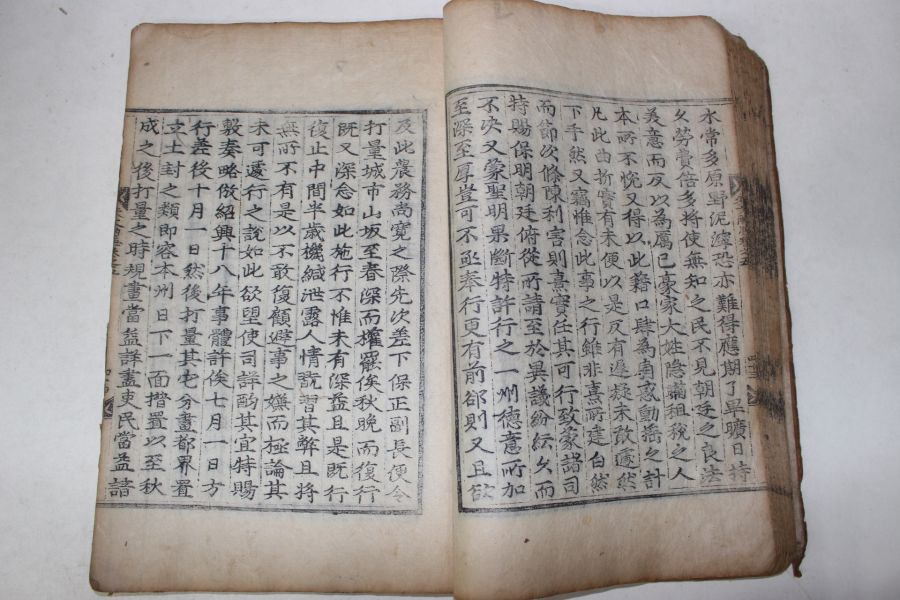 水常多原野泥濘恐亦難得應期了畢曠日持
久勞費倍多將使無知之民不見朝廷之良法
美意而反以為厲已豪家大姓隱瞞租稅之人
本所不悅又得以此藉口肆為扇惑動搖之計
凡此曲折實有未便以是反有遲疑未敢遽然
下手然又竊惟念此事之行雖非熹所建白然
而節次條陳利害則熹實任其可行致蒙諸司
特賜保明朝廷俯從所請至於異議紛紜久而
不决又蒙聖明果斷特許行之一州德意所加
至深至厚豈可不亟奉行更有前却則又且欲
及此農務尚寬之際先次差下保正副長便令
打量城市山坂至春深而權罷俟秋晚而復行
既又深念如此施行不惟未有深益且是既行
復止中間半歲機緘泄露人情玩習其弊且將
無所不有是以不敢復顧避事之嫌而極論其
未可遽行之說如此欲望使司詳酌其宜特賜
敷奏略倣紹興十八年事體許俟七月一日方
行差役十月一日然後打量其宅分畫都界置
立土封之類即容本州日下一面措置以至秋
成之後打量之時規畫當益詳盡吏民當益諳